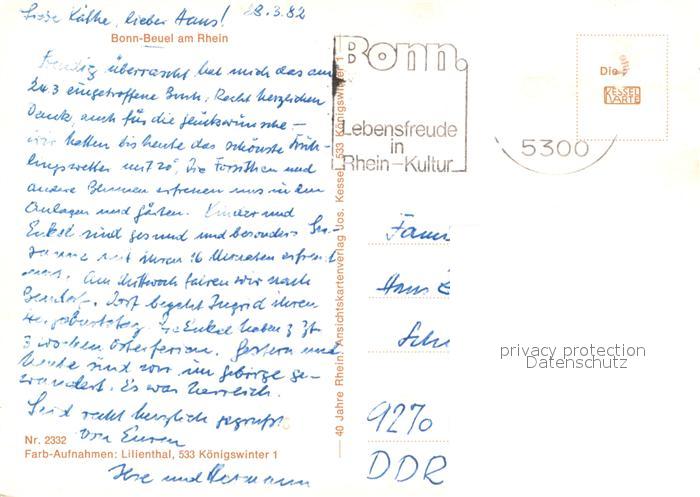 Liebe Käthe, lieber Hans! 28.3.82
Bonn-Beuel am Rhein
Freudig überrascht hat mich das am
24.3 eingetroffene Buch, Recht herzlichen
Dank, auch für die Glückwünsche –
wir hatten bis heute das schönste Früh-
lingswetter mit 20°, Die Forsythien und
andere Blumen erfreuen uns in den
Anlagen und Gärten. Kinder und
Enkel sind gesund und besonders Su-
sanne mit ihren 16 Monaten erfreut
uns. Am Mittwoch fahren wir nach
Bendorf. Dort begeht Ingrid ihren
Geburtstag. Die Enkel haben z. Zt.
3 Wochen Osterferien. Gestern und
heute sind wir im Gebirge ge-
wandert. Es war herrlich.
Seid recht herzlich gegrüßt
von Euren
Ilse und Hermann
Nr. 2332
Farb-Aufnahmen: Lilienthal, 533 Königswinter 1
40 Jahre Rhein. Ansichtskartenverlag Jos. Kessel, 533 Königswinter 1
Bonn.
Lebensfreude
in
Rhein-Kultur
5300
Die
KESSEL
KARTE
Fami
Hans
Schu
9270
DDR
privacy protection
Datenschutz